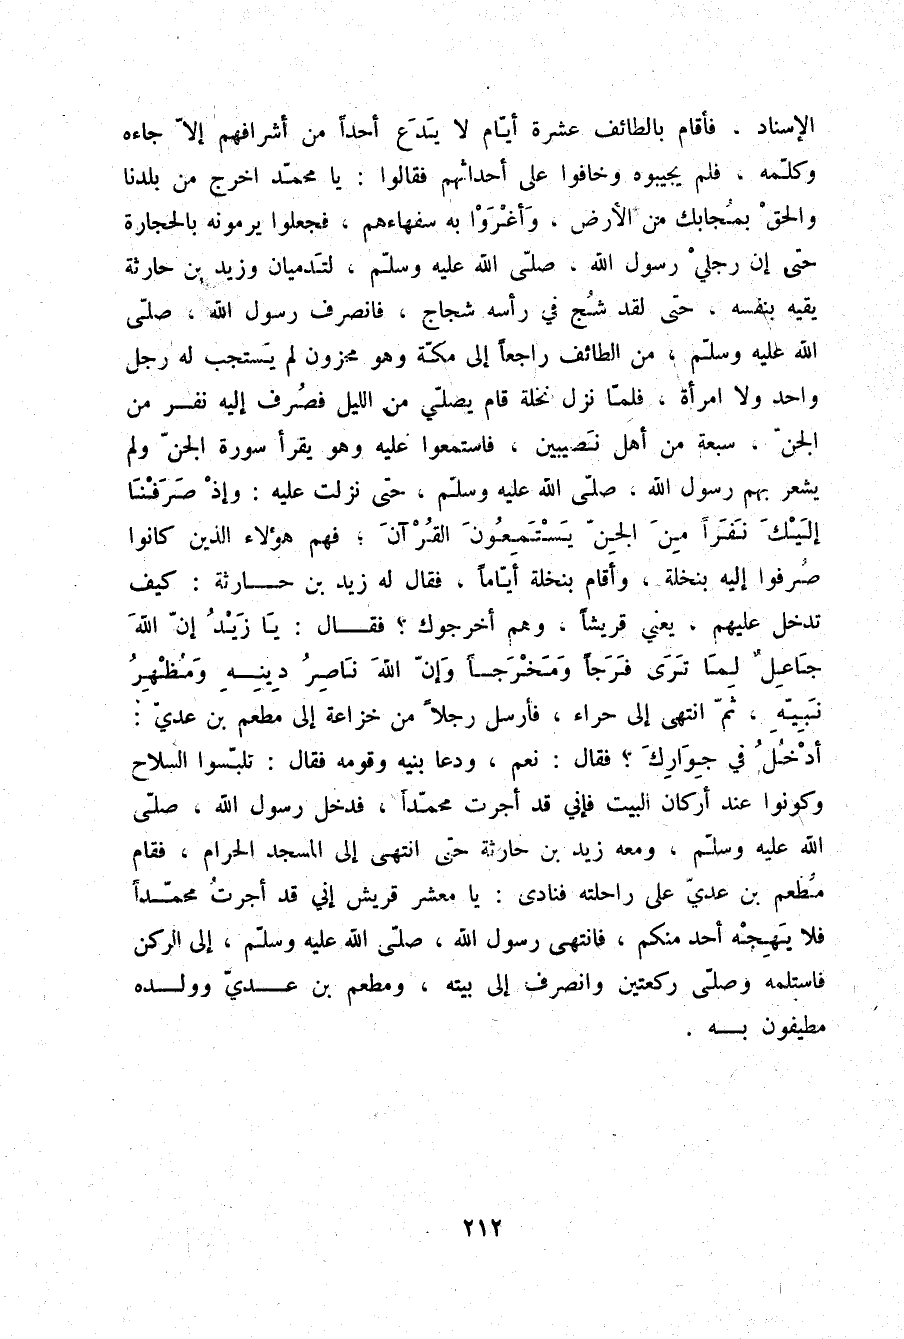 الإسناد . فأقام بالطائف عشرة أيّام لا يَدَع أحداً من أشرافهم إلاّ جاءه
وكلّمه ، فلم يجيبوه وخافوا على أحداثهم فقالوا : يا محمّد اخرج من بلدنا
والحقْ بمُجابك من الأرض ، وَأغْرَوْا به سفهاءهم ، فجعلوا يرمونه بالحجارة
حتّى إن رجليْ رسول الله ، صلّى الله عليه وسلّم ، لتَدميان وزيد بن حارثة
يقيه بنفسه ، حتّى لقد شُج في رأسه شجاج ، فانصرف رسول الله ، صلّى
الله عليه وسلّم ، من الطائف راجعاً إلى مكّة وهو محزون لم يَستجب له رجل
واحد ولا امرأة ، فلمّا نزل نخلة قام يصلّي من الليل فصُرف إليه نفــر من
الجنّ ، سبعة من أهل نَصيبين ، فاستمعوا عليه وهو يقرأ سورة الجنّ ولم
يشعر بهم رسول الله ، صلّى الله عليه وسلّم ، حتّى نزلت عليه : وإذْ صَرَفْنَا
إلَيْكَ نَفَرَاً مِنَ الجِنّ يَسْتَمِعُونَ القُرْآنَ ؛ فهم هؤلاء الذين كانوا
صُرفوا إليه بنخلة ، وأقام بنخلة أيّاماً ، فقال له زيد بن حــــارثة : كيف
تدخل عليهم ، يعني قريشاً ، وهم أخرجوك ؟ فقــــال : يَا زَيْدُ إنّ اللهَ
جَاعِلٌ لِمَا تَرَى فَرَجاً وَمَخْرَجــاً وَإنّ اللهَ نَاصِرُ دِينِــهِ وَمُظْهِرُ
نَبِيّهِ ، ثمّ انتهى إلى حراء ، فأرسل رجلاً من خزاعة إلى مطعم بن عديّ :
أدْخُلُ في جِوَارِكَ ؟ فقال : نعم ، ودعا بنيه وقومه فقال : تلبّسوا السلاح
وكونوا عند أركان البيت فإني قد أجرت محمّداً ، فدخل رسول الله ، صلّى
الله عليه وسلّم ، ومعه زيد بن حارثة حتّى انتهى إلى المسجد الحرام ، فقام
مُطعم بن عديّ على راحلته فنادى : يا معشر قريش إني قد أجرتُ محمّــداً
فلا يَهِجْه أحد منكم ، فانتهى رسول الله ، صلّى الله عليه وسلّم ، إلى الركن
فاستلمه وصلّى ركعتين وانصرف إلى بيته ، ومطعم بن عــــديّ وولــــده
مطيفون بـــه .
٢١٢